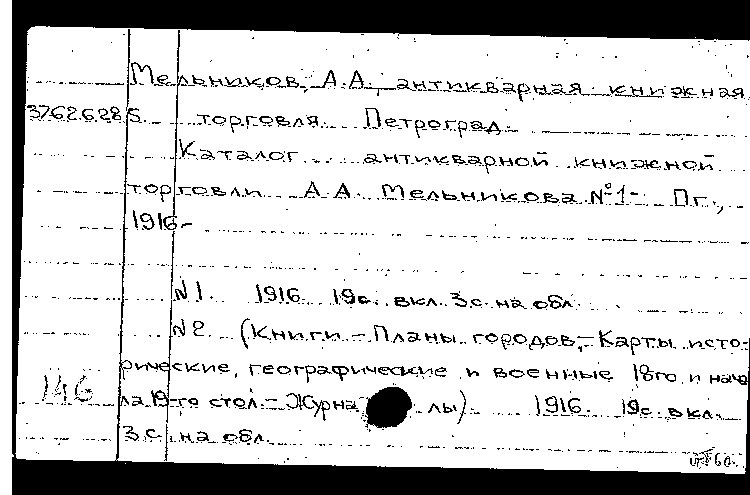 Мельников, А.А., антикварная книжная
37626285. торговля. Петроград.
Каталог антикварной книжной
торговли А.А. Мельникова №1- Пг.,
1916-
№1. 1916. 19с. вкл. 3с. на обл.
№2. (Книги – Планы городов, – Карты исто-
рические, географические и военные 18го и нача-
146 ла 19-го стол. – Журналы). 1916. 19с. вкл.
3с. на обл.